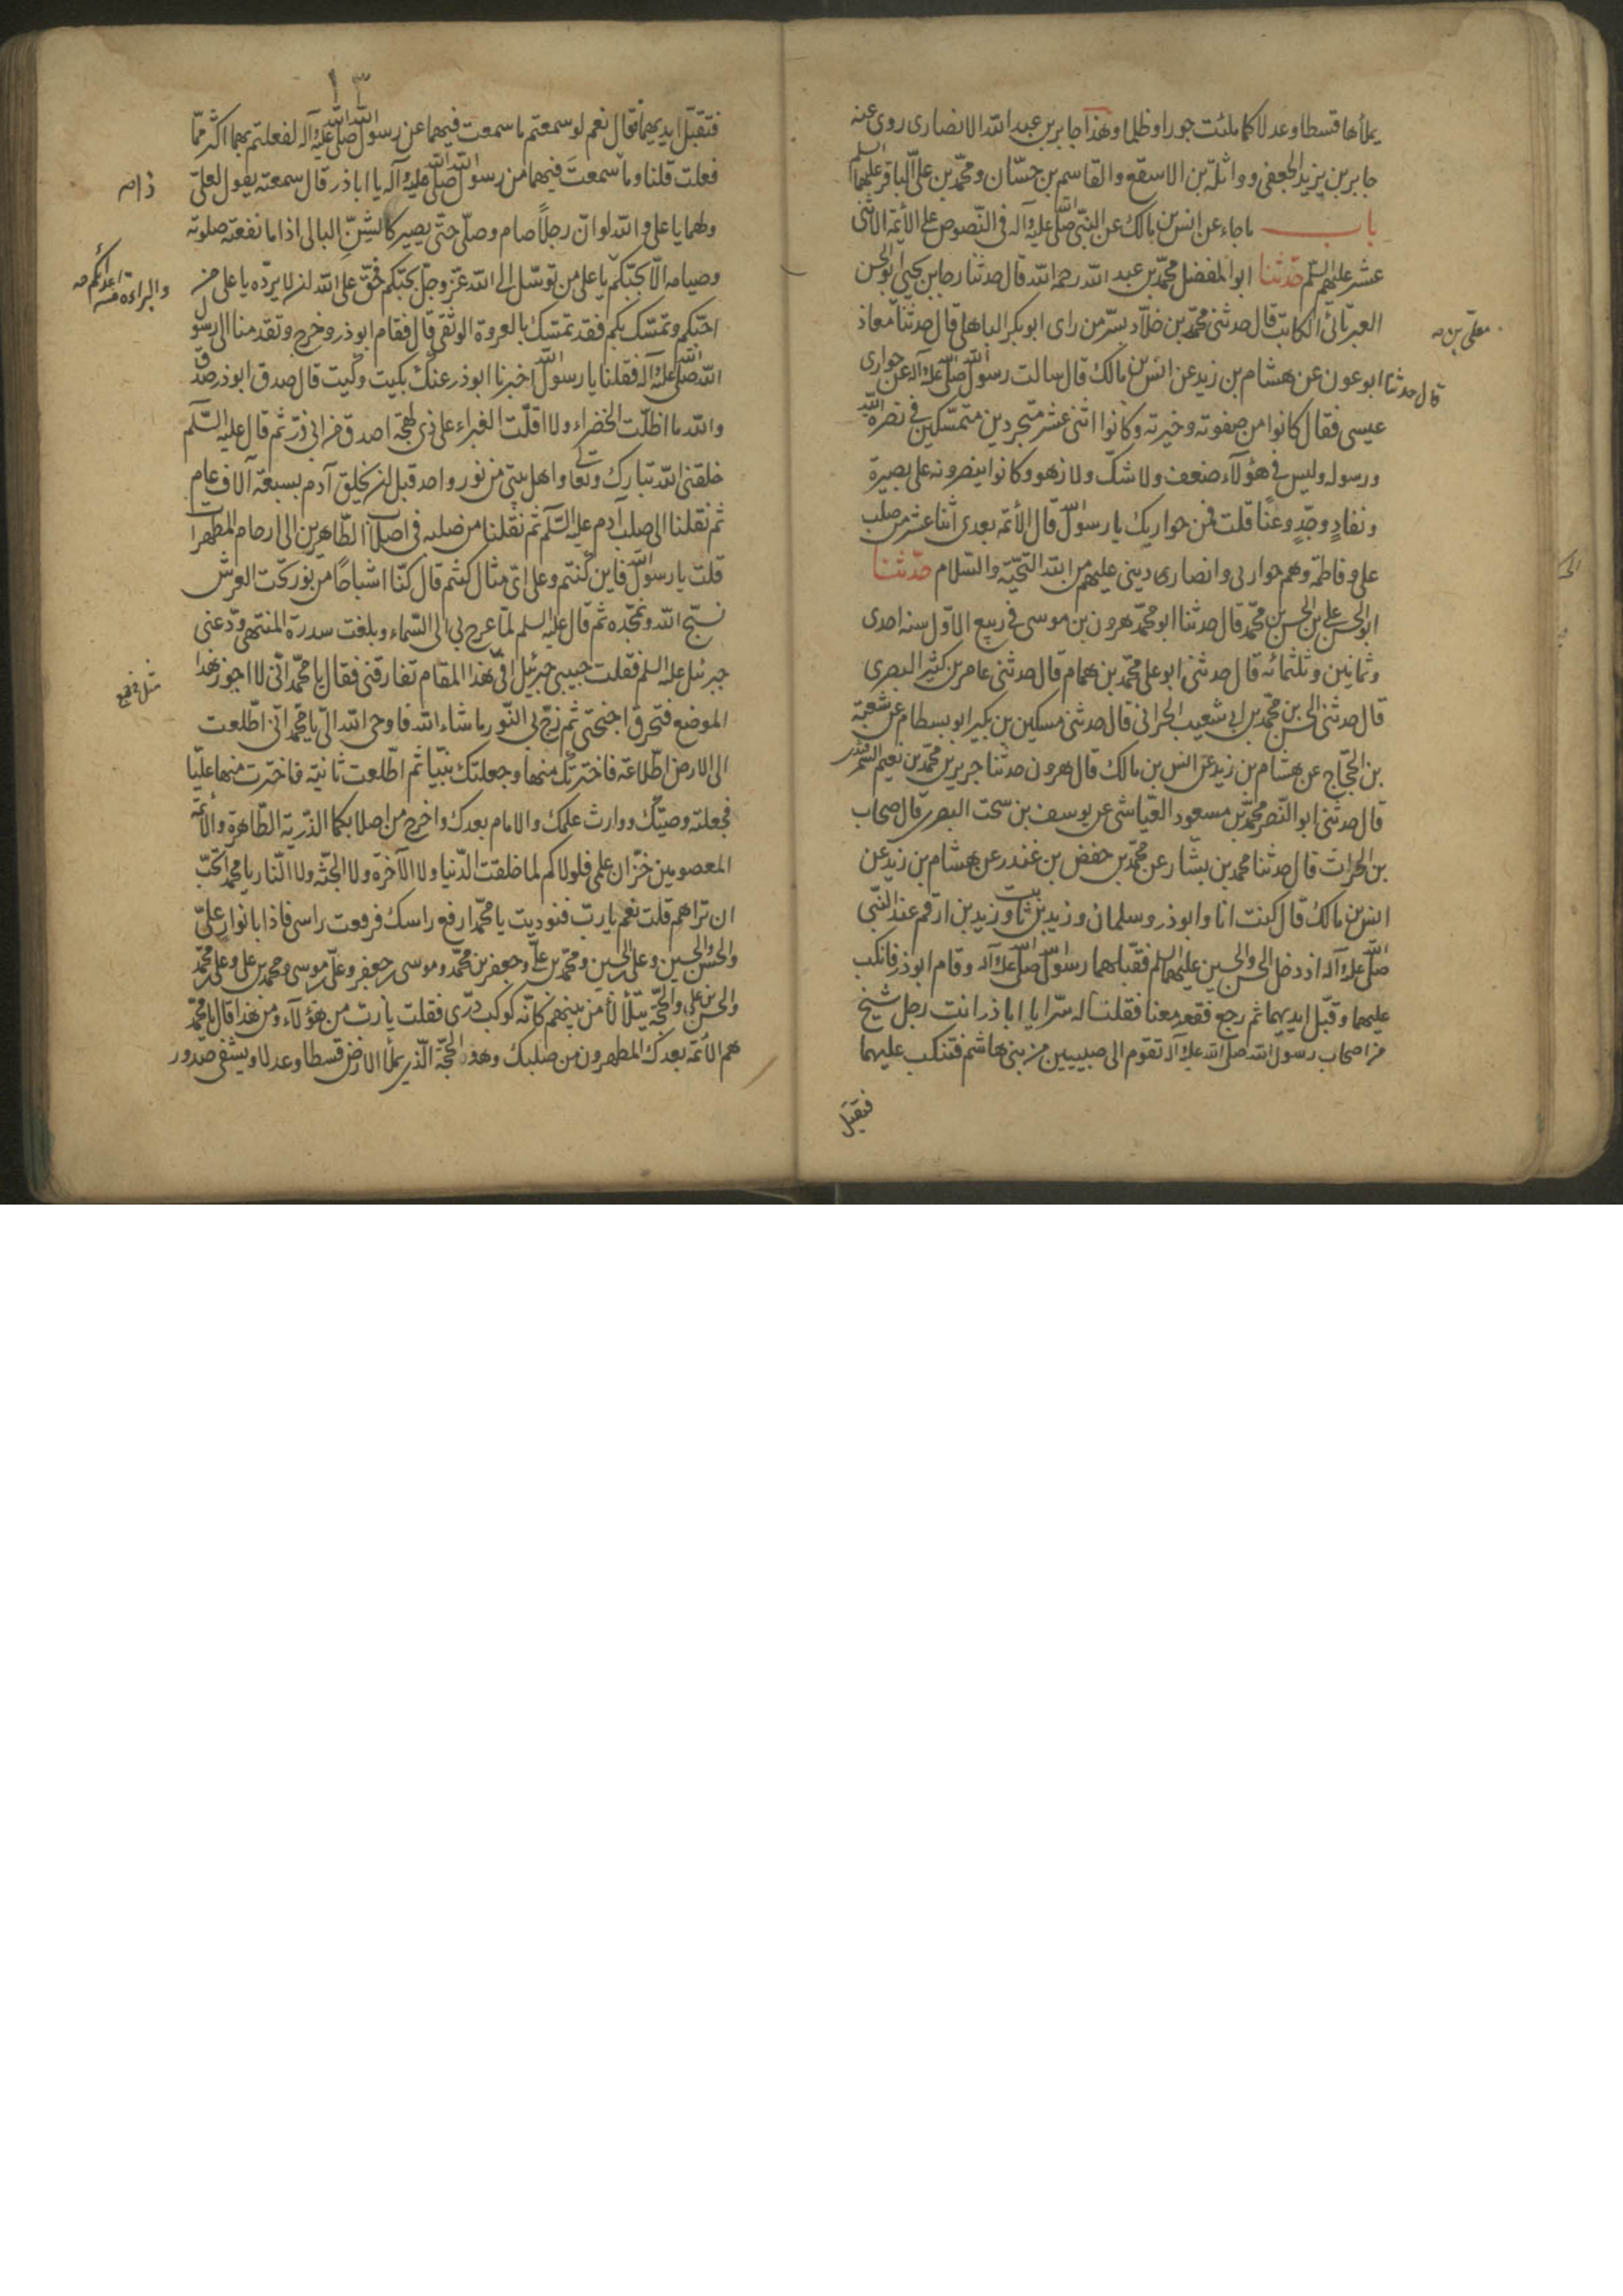 يملأها قسطا وعدلا كما ملئت جورا وظلما وهذا جابر بن عبد الله الانصارى روى عنه
جابر بن يزيد الجعفى وواثلة بن الاسقع والقاسم بن حسّان ومحمّد بن علىّ الباقر عليهما السلم
باب ما جاء عن انس بن مالك عن النبّى صلى الله عليه وآله فى النّصوص على الأئمة الاثنى
عشر عليهم السلم حدّثنا ابو المفضل محمّد بن عبد الله رحمه الله قال حدثنا رجا بن يحيى ابو الحسن
العبرتائى الكاتب قال حدثنى محمّد بن خلّاد بسرّ من راى ابو بكر الباهلى قال حدثنا معاذ
معلى بن
قال حدثنا ابو عون عن هشام بن زيد عن انس بن مالك قال سالت رسول الله صلى الله عليه وآله عن حوارى
عيسى فقال كانوا من صفوته وخيرته وكانوا اثنى عشر متجردين متمسّكين فى نصرة الله
ورسوله وليس فى هؤلاء ضعف ولا شكّ ولا زهو وكانوا ينصرونه على بصيرة
ونفاد وجدّ وعنا قلت فمن حواريك يا رسول الله قال الأئمه بعدى اثنا عشر من صلب
على وفاطمة وهم حواريى وانصارى دينى عليهم من الله التحيّة والسّلام حدّثنا
ابو الحسن على بن الحسن بن محمّد قال حدثنا ابو محمّد هرون بن موسى فى ربيع الاوّل سنه احدى
وثمانين وثلثمائه قال حدثنى ابو على محمّد بن همام قال حدثنى عامر بن كثير البصرى
قال حدثنى الحسن بن محمّد بن ابى شعيب الحرانى قال حدثنى مسكين بن بكير ابو بسطام عن شعبة
بن الحجّاج عن هشام بن زيد عن انس بن مالك قال هرون حدثنا جرير بن محمّد بن نعيم السمرقندى
قال حدثنى ابو النّضر محمّد بن مسعود العيّاشى عن يوسف بن سخت البصرى قال صحاب
بن الحراث قال حدثنا محمد بن بشّار عن محمّد بن حفض بن غندر عن هشام بن زيد عن
انس بن مالك قال كنت انا وابو ذر وسلمان وزيد بن ثابت وزيد بن ارقم عند النّبى
صلى الله عليه وآله اذ دخل الحسن والحسين عليهما السلم فقبّلهما رسول الله صلى الله عليه وآله وقام ابو ذر فانكب
عليهما وقبّل ايديهما ثم رجع فقعد معنا فقلنا له سرّا يا ابا ذر انت رجل شيخ
من اصحاب رسول الله صلى الله عليه وآله تقوم الى صبيين من بنى هاشم فتنكب عليهما
فتقبل
١٣
فتقبّل ايديهما فقال نعم لو سمعتم ما سمعت فيهما عن رسول الله صلى الله عليه وآله لفعلتم بهما اكثر ممّا
فعلت قلنا وما سمعت فيهما من رسول الله صلى الله عليه وآله يا ابا ذر قال سمعته يقول لعلىّ
ولهما يا على والله لو انّ رجلاً صام وصلّى حتى يصير كالشنّ البالى اذا ما نفعته صلوته
وصيامه الّا بحبّكم يا على من توسّل الى الله عزّ وجلّ بحبّكم فحقّ على الله ان لا يردّه يا على من
والبراءة من اعدائكم
احبّكم وتمسّك بكم فقد تمسّك بالعروة الوثقى قال فقام ابو ذر وخرج وتقدمنا الى رسول
الله صلى الله عليه وآله فقلنا يا رسول الله اخبرنا ابو ذر عنك بكيت وكيت قال صدق ابو ذر صدق
والله ما اظلّت الخضراء ولا اقلّت الغبراء على ذى لهجة اصدق من ابى ذرّ ثم قال عليه السّلم
خلقنى الله تبارك وتعالى واهل بيتى من نور واحد قبل ان يخلق آدم بسبعة آلاف عام
ثم نقلنا الى صلب آدم عليه السّلم ثم نقلنا من صلبه فى اصلاب الطّاهرين الى ارحام المطهرات
قلت يا رسول الله فاين كنتم وعلى اىّ مثال كنتم قال كنّا اشباحًا من نور تحت العرش
نسبّح الله ونمجّده ثم قال عليه السلم لمّا عرج بى الى السّماء وبلغت سدرة المنتهى ودّعنى
جبرئيل عليه السلم فقلت حبيبى جبرئيل افى هذا المقام تفارقنى فقال يا محمّد انّى لا اجوز هذا
الموضع فتحرق اجنحتى ثم زجّ بى النّور ما شاء الله فاوحى الله الىّ يا محمّد انّى اطّلعت
الى الارض اطّلاعة فاخترتك منها وجعلتك نبيّا ثم اطّلعت ثانية فاخترت منها عليّا
فجعلته وصيّك ووارث علمك والامام بعدك واخرج من اصلابكما الذّرية الطّاهرة والأئمّة
المعصومين خزّان علمى فلولاكم لما خلقت الدّنيا ولا الآخرة ولا الجنّة ولا النّار يا محمد اتحبّ
ان تراهم قلت نعم يا ربّ فنوديت يا محمّد ارفع راسك فرفعت راسى فاذا بانوار علىّ
والحسن والحسين وعلى بن الحسين ومحمّد بن علىّ وجعفر بن محمّد وموسى بن جعفر وعلىّ بن موسى ومحمد بن على وعلى بن محمّد
والحسن بن على والحجّة يتلألأ من بينهم كانّه كوكب درّى فقلت يا ربّ من هؤلاء ومن هذا قال يا محمّد
هم الأئمّة بعدك المطهرون من صلبك وهو الحجّة الّذى يملأ الارض قسطا وعدلا ويشفى صدور